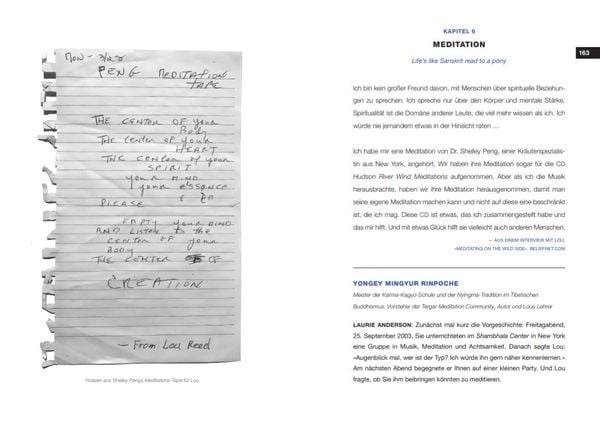 MON - 3/28
PENG MEDITATION
TAPE
THE CENTER OF your
Body
The CenTer of your
HEART
THE CENTER of your
SPIRIT
your MIND
your essence
PLEASE
EMPTY your MIND
AND LISTEN to the
CENTER OF your
BODY
THE CENTER OF
CREATION
— From Lou Reed
Notizen aus Shelley Pengs Meditations-Tape für Lou
KAPITEL 6
MEDITATION
Life's like Sanskrit read to a pony
163
Ich bin kein großer Freund davon, mit Menschen über spirituelle Beziehun-
gen zu sprechen. Ich spreche nur über den Körper und mentale Stärke.
Spiritualität ist die Domäne anderer Leute, die viel mehr wissen als ich. Ich
würde nie jemandem etwas in der Hinsicht raten ...
Ich habe mir eine Meditation von Dr. Shelley Peng, einer Kräuterspezialis-
tin aus New York, angehört. Wir haben ihre Meditation sogar für die CD
Hudson River Wind Meditations aufgenommen. Aber als ich die Musik
herausbrachte, haben wir ihre Meditation herausgenommen, damit man
seine eigene Meditation machen kann und nicht auf diese eine beschränkt
ist, die ich mag. Diese CD ist etwas, das ich zusammengestellt habe und
das mir hilft. Und mit etwas Glück hilft sie vielleicht auch anderen Menschen.
— AUS EINEM INTERVIEW MIT LOU,
«MEDITATING ON THE WILD SIDE», BELIEFNET.COM
YONGEY MINGYUR RINPOCHE
Meister der Karma-Kagyü-Schule und der Nyingma-Tradition im Tibetischen
Buddhismus, Vorsteher der Tergar Meditation Community, Autor und Lous Lehrer
LAURIE ANDERSON: Zunächst mal kurz die Vorgeschichte: Freitagabend,
25. September 2003. Sie unterrichteten im Shambhala Center in New York
eine Gruppe in Musik, Meditation und Achtsamkeit. Danach sagte Lou:
«Augenblick mal, wer ist der Typ? Ich würde ihn gern näher kennenlernen.»
Am nächsten Abend begegnete er Ihnen auf einer kleinen Party. Und Lou
fragte, ob Sie ihm beibringen könnten zu meditieren.